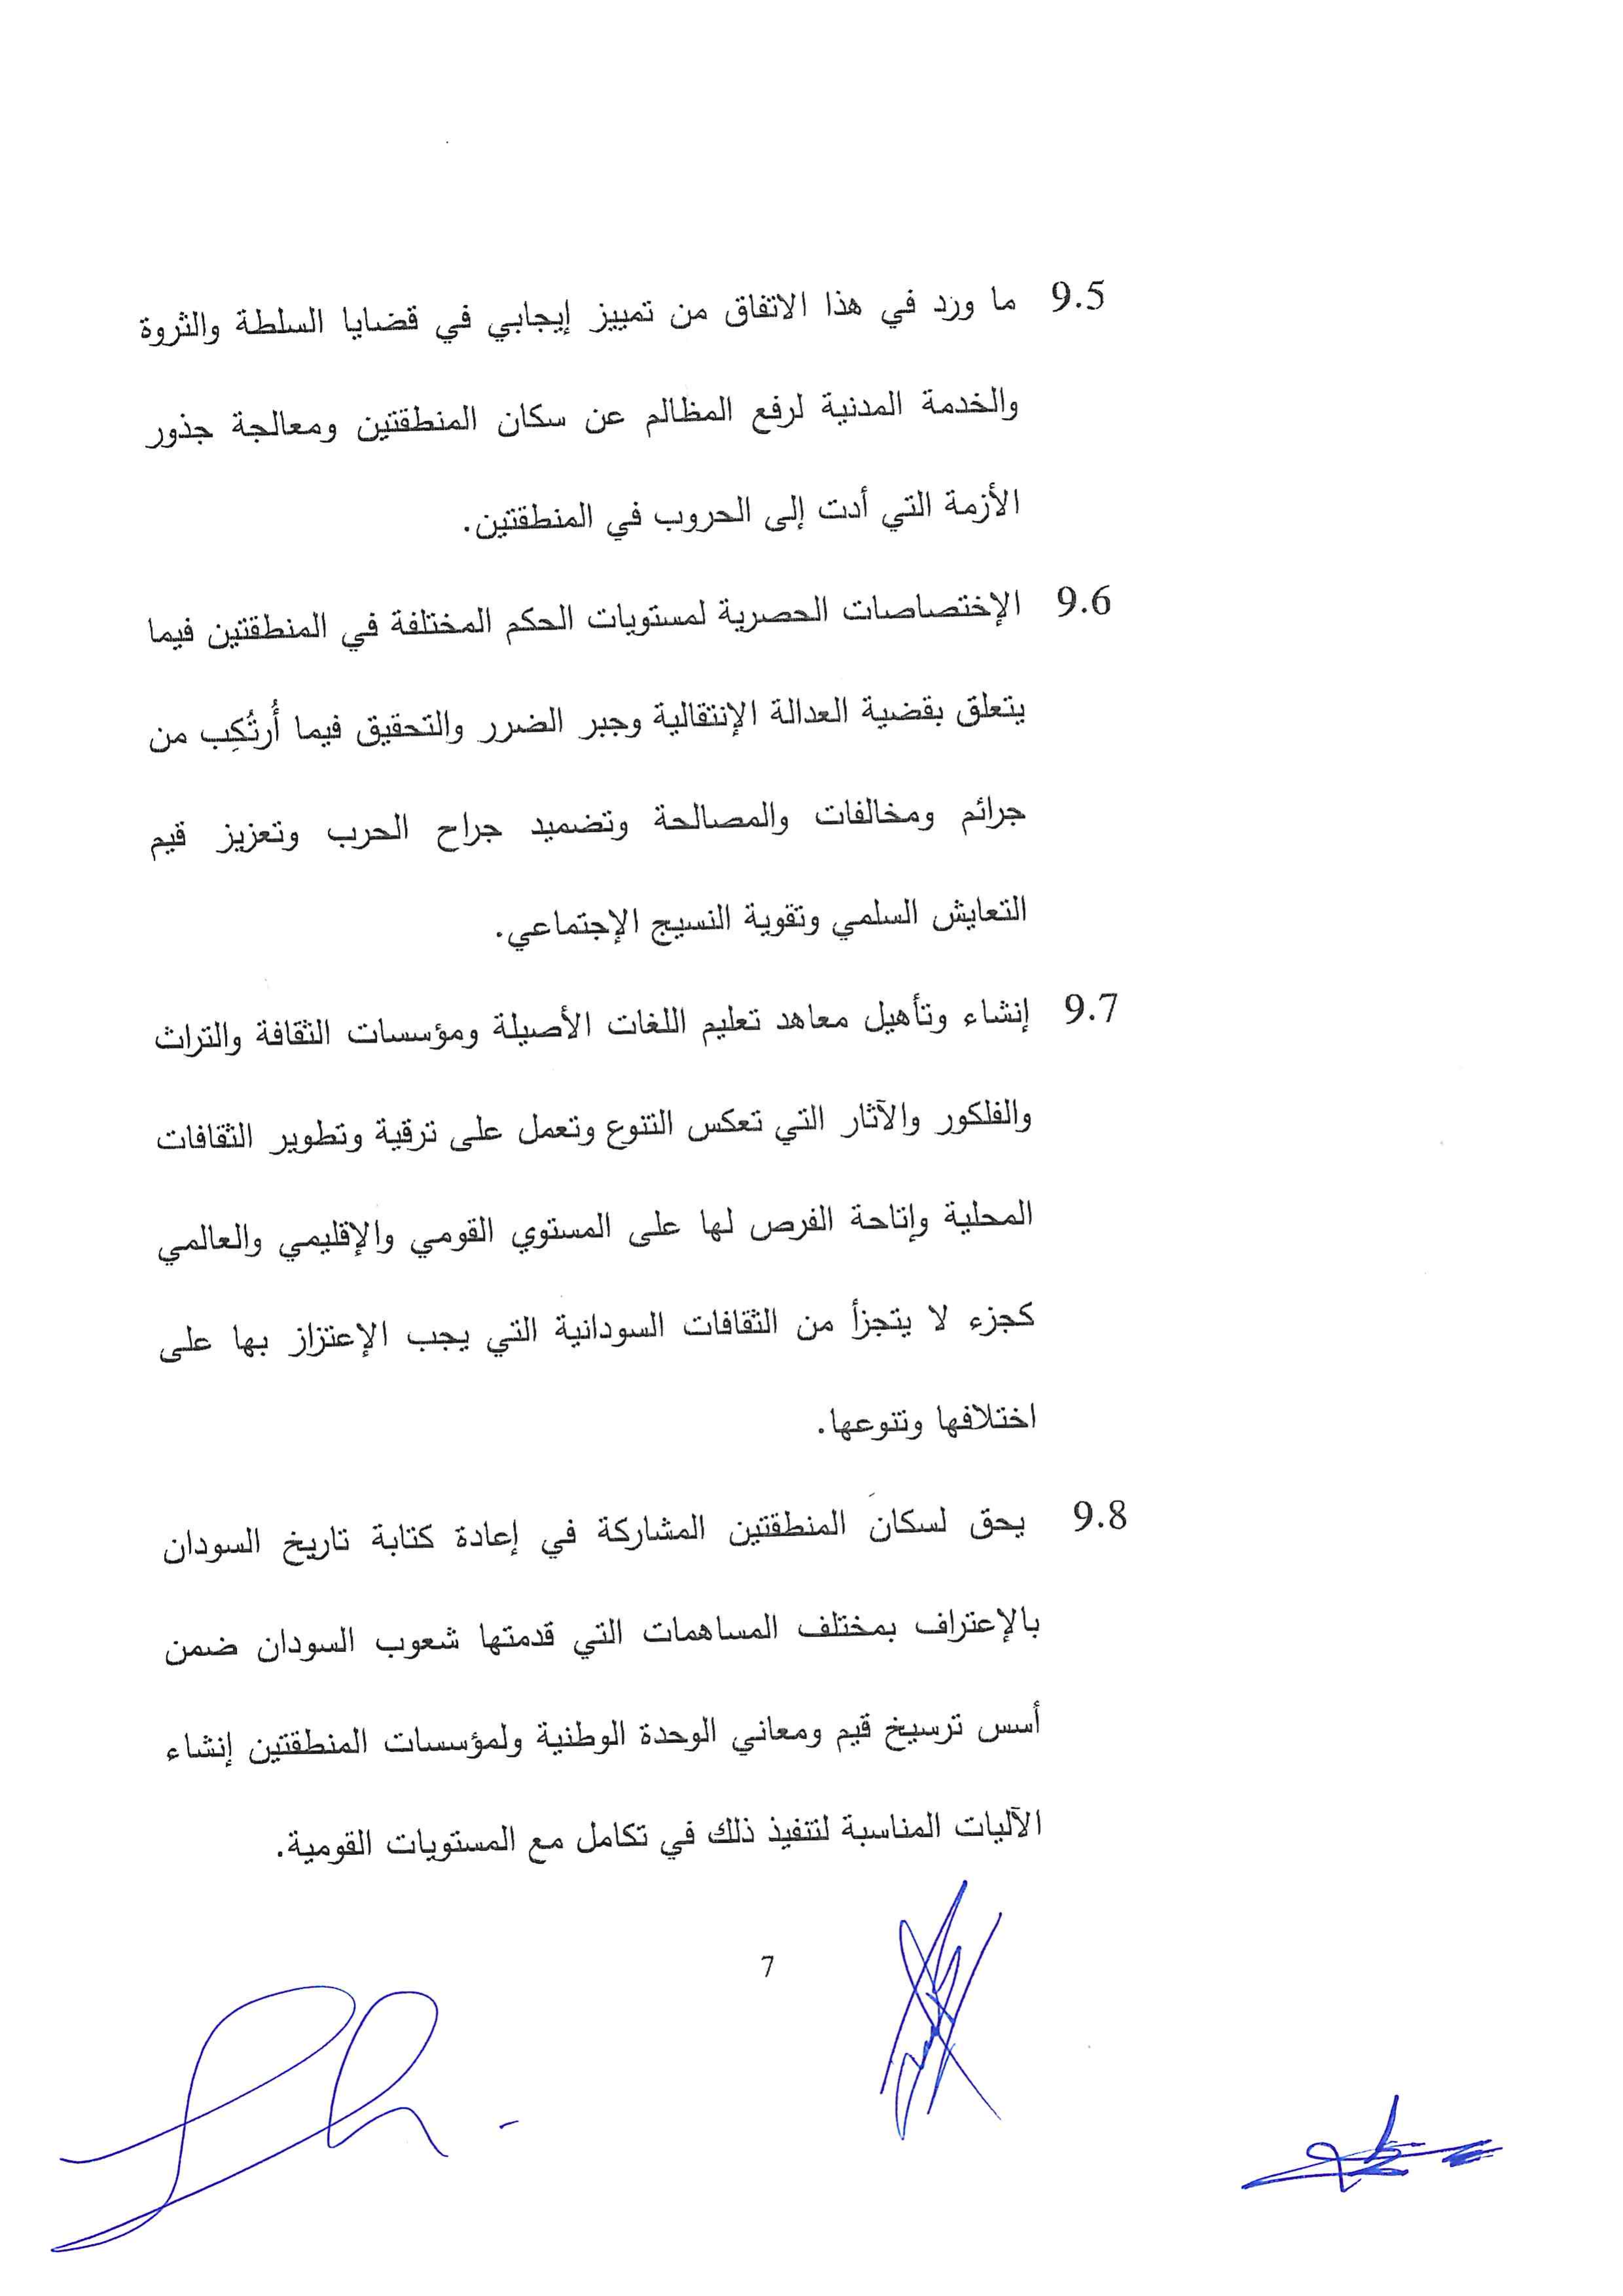 9.5 ما ورد في هذا الاتفاق من تمييز إيجابي في قضايا السلطة والثروة
والخدمة المدنية لرفع المظالم عن سكان المنطقتين ومعالجة جذور
الأزمة التي أدت إلى الحروب في المنطقتين.
9.6 الإختصاصات الحصرية لمستويات الحكم المختلفة في المنطقتين فيما
يتعلق بقضية العدالة الإنتقالية وجبر الضرر والتحقيق فيما أُرتُكِب من
جرائم ومخالفات والمصالحة وتضميد جراح الحرب وتعزيز قيم
التعايش السلمي وتقوية النسيج الإجتماعي.
9.7 إنشاء وتأهيل معاهد تعليم اللغات الأصيلة ومؤسسات الثقافة والتراث
والفلكور والآثار التي تعكس التنوع وتعمل على ترقية وتطوير الثقافات
المحلية وإتاحة الفرص لها على المستوي القومي والإقليمي والعالمي
كجزء لا يتجزأ من الثقافات السودانية التي يجب الإعتزاز بها على
اختلافها وتنوعها.
9.8 يحق لسكان المنطقتين المشاركة في إعادة كتابة تاريخ السودان
بالإعتراف بمختلف المساهمات التي قدمتها شعوب السودان ضمن
أسس ترسيخ قيم ومعاني الوحدة الوطنية ولمؤسسات المنطقتين إنشاء
الآليات المناسبة لتنفيذ ذلك في تكامل مع المستويات القومية.
7